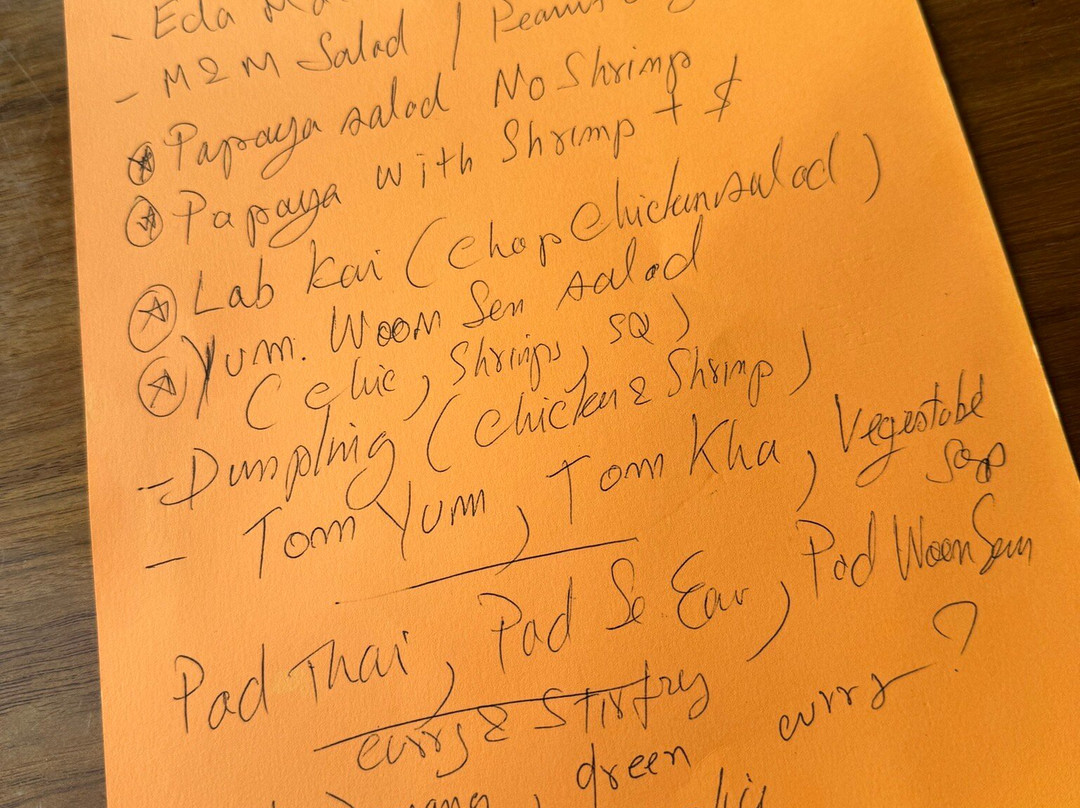 - Eda
- M & M Salad / Peanut
Papaya salad No Shrimp
Papaya with Shrimp + $
Lab Kai (Chop Chicken salad)
Yum. Woon Sen salad
(chic, Shrimps, SQ)
- Dumpling (chicken & Shrimp)
- Tom Yum, Tom Kha, Vegestable
Soap
Pad Thai, Pad Se Eaw, Pad Woon Sen
curry & Stirfry
, green curry?